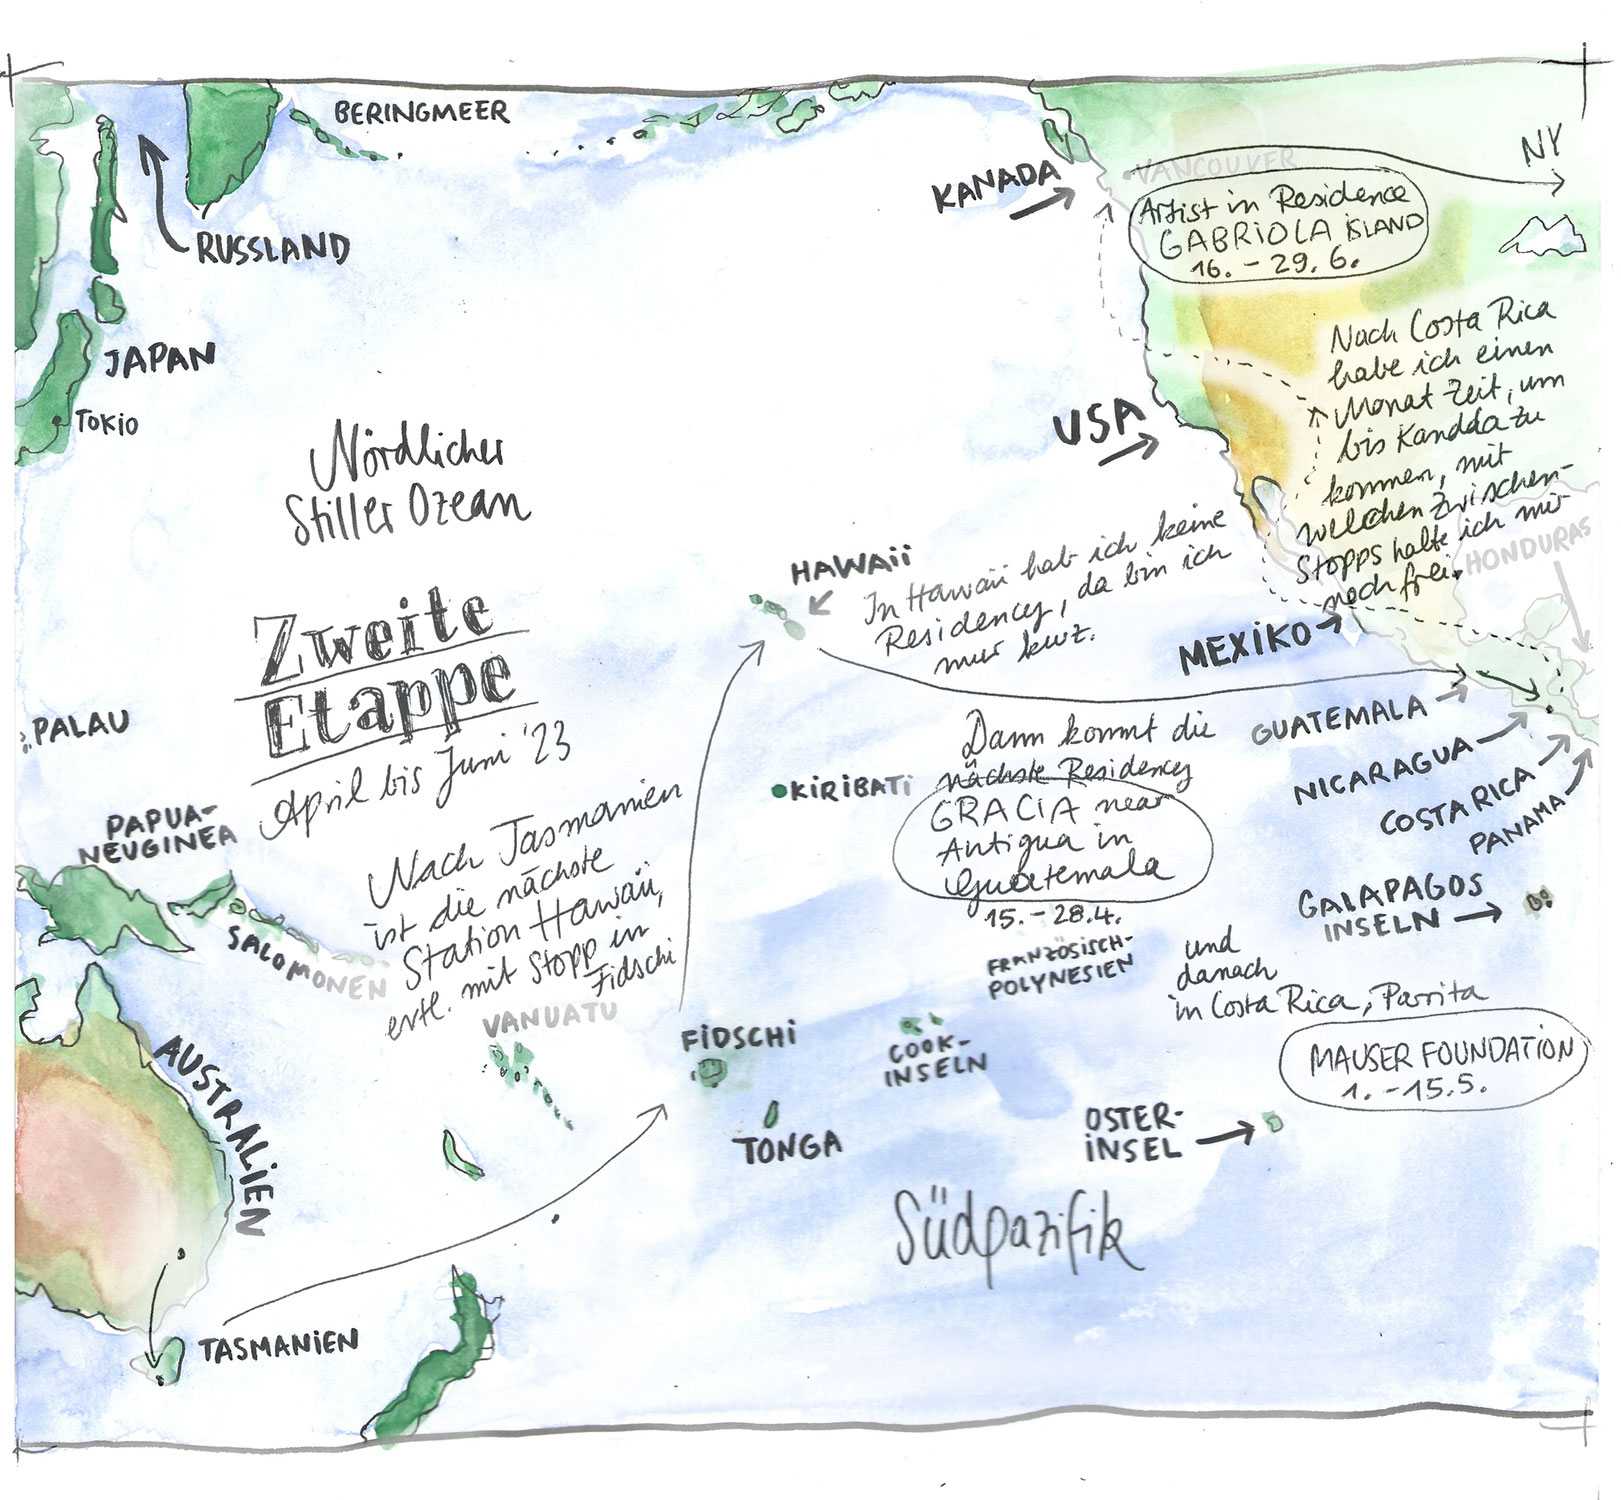 BERINGMEER
RUSSLAND
JAPAN
TOKIO
Nördlicher
Stiller Ozean
KANADA
VANCOUVER
NY
Artist in Residence
GABRIOLA ISLAND
16. - 29. 6.
USA
Nach Costa Rica
habe ich einen
Monat Zeit, um
bis Kanada zu
kommen, mit
welchen Zwischen-
Stopps halte ich mir
noch frei.
HONDURAS
HAWAII
In Hawaii hab ich keine
Residency, da bin ich
nur kurz.
MEXIKO
Zweite
Etappe
April bis Juni '23
PALAU
GUATEMALA
NICARAGUA
COSTA RICA
PANAMA
Dann kommt die
nächste Residency
GRACIA near
Antigua in
Guatemala
15. - 28.4.
KIRIBATI
PAPUA-
NEUGINEA
Nach Tasmanien
ist die nächste
Station Hawaii,
evtl. mit Stopp in
Fidschi
SALOMONEN
VANUATU
GALAPAGOS
INSELN
FRANZÖSISCH-
POLYNESIEN
und
danach
in Costa Rica, Parrita
MAUSER FOUNDATION
1. - 15.5.
FIDSCHI
COOK-
INSELN
AUSTRALIEN
TONGA
OSTER-
INSEL
Südpazifik
TASMANIEN